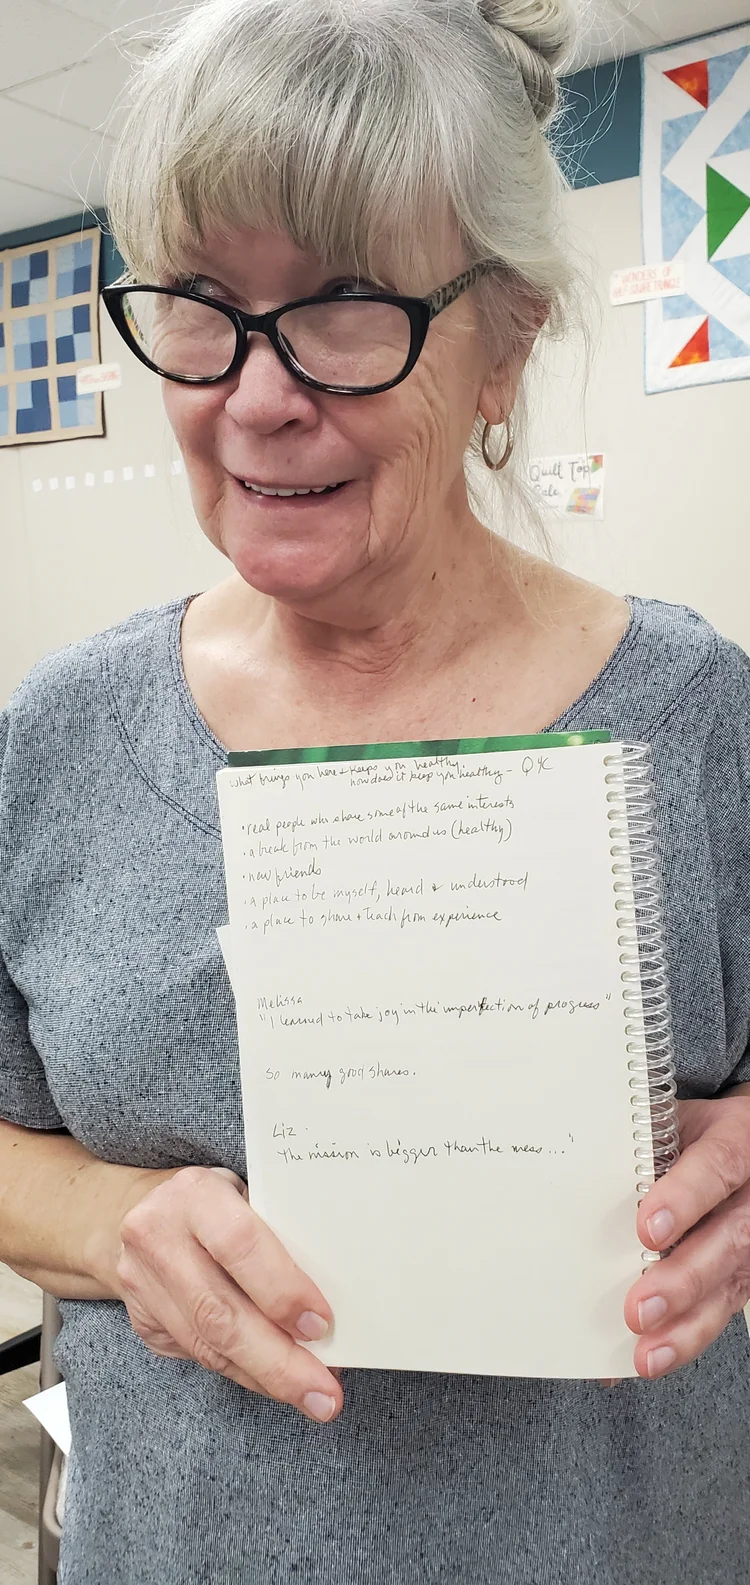 "WONDERS OF
HALF SQUARE TRIANGLE
Quilt Top
Sale
what brings you here + keeps you healthy.
how does it keep you healthy -
•real people who share some of the same interests
•a break from the world around us (healthy)
•new friends
•a place to be myself, heard + understood
•a place to share + teach from experience
Melissa
"I learned to take joy in the imperfection of progress"
So many good shares.
Liz.
the mission is bigger than the mess..."